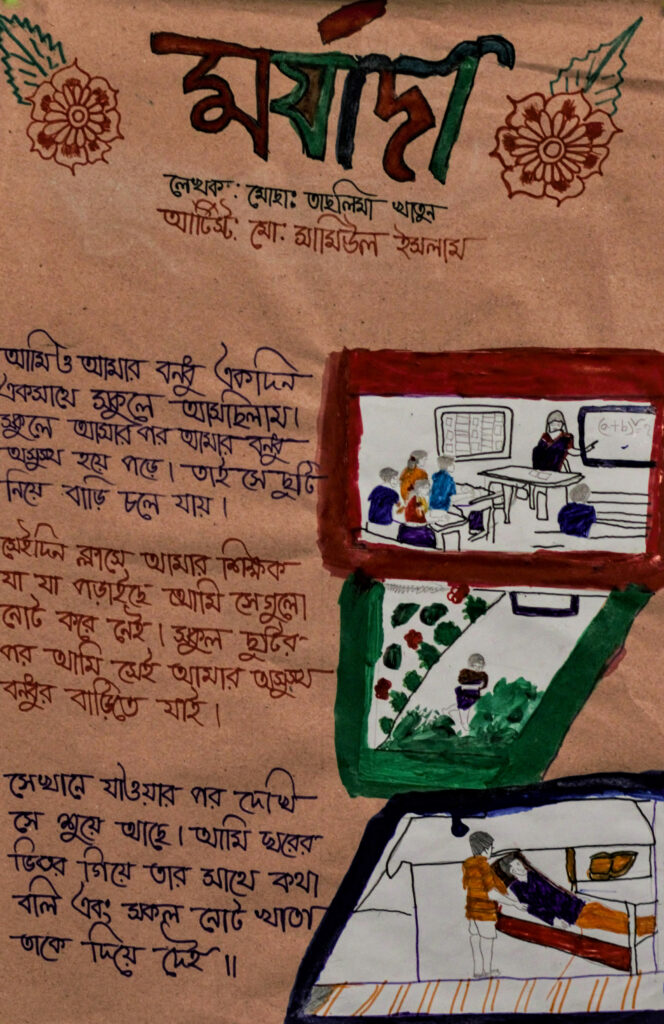 মর্যাদা
লেখক: মোছা: তাছলিমা খাতুন
আর্টিস্ট: মো: সামিউল ইসলাম
আমি ও আমার বন্ধু একদিন
একসাথে স্কুলে আসছিলাম।
স্কুলে আসার পর আমার বন্ধু
অসুস্থ হয়ে পড়ে। তাই সে ছুটি
নিয়ে বাড়ি চলে যায়।
সেইদিন ক্লাসে আমার শিক্ষক
যা যা পড়াইছে আমি সেগুলো
নোট করে নেই। স্কুল ছুটির
পর আমি সেই আমার অসুস্থ
বন্ধুর বাড়িতে যাই।
সেখানে যাওয়ার পর দেখি
সে শুয়ে আছে। আমি ঘরের
ভিতর গিয়ে তার সাথে কথা
বলি এবং সকল নোট খাতা
তাকে দিয়ে দেই॥